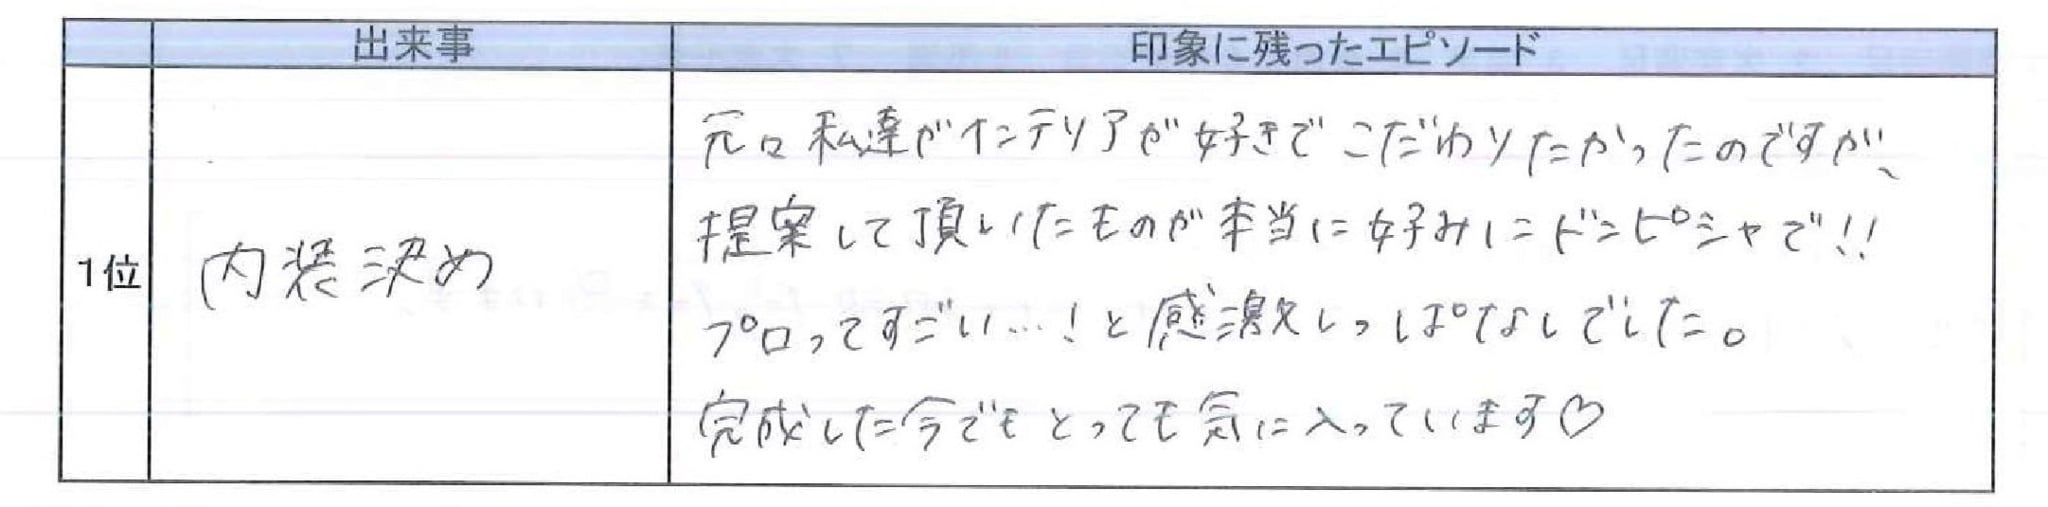 出来事 印象に残ったエピソード
1位 内装決め
元々私達がインテリアが好きでこだわりたかったのですが、
提案して頂いたものが本当に好みにドンピシャで!!
プロってすごい…!と感激しっぱなしでした。
完成した今でもとっても気に入っています♡